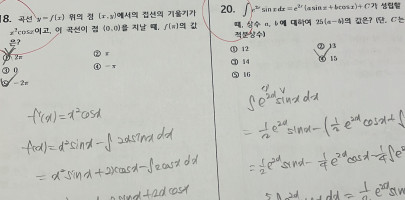 18. 곡선 y=f(x) 위의 점 (x, y)에서의 접선의 기울기가
x²cosx이고, 이 곡선이 점 (0,0)을 지날 때, f(π)의 값
은?
① 2π
② π
③ 0
④ -π
⑤ -2π
f'(x) = x²cosx
f(x) = x²sinx - ∫ 2xsinx dx
= x²sinx + 2xcosx - ∫ 2cosx dx
20. ∫ e²ˣ sin x dx = e²ˣ (a sin x + b cos x) + C가 성립할
때, 상수 a, b에 대하여 25(a-b)의 값은? (단, C는
적분상수)
① 12
② 13
③ 14
④ 15
⑤ 16
∫ e²ˣ sinx dx
= ½ e²ˣ sinx - (½ e²ˣ cosx + ∫
= ½ e²ˣ sinx - ¼ e²ˣ cosx - ¼ ∫ e²